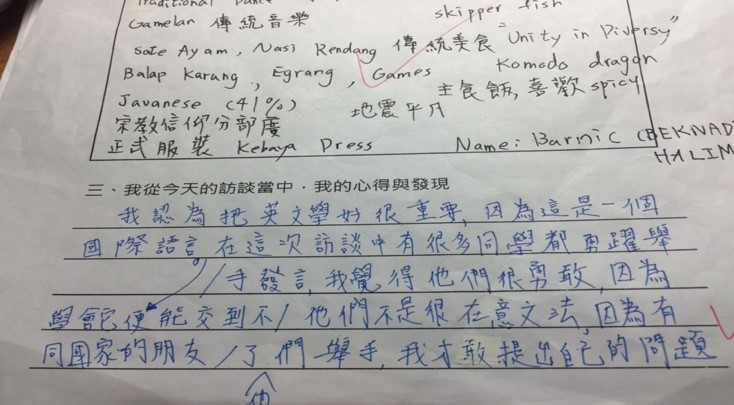 Traditional Dance
Gamelan 傳統音樂
skipper fish
Sate Ayam, Nasi Rendang 傳統美食 "Unity in Diversy"
Balap Karung, Egrang, Games
Komodo dragon
主食飯,喜歡 spicy
Javanese (41%)
地震平凡
宗教信仰分部度
正式服裝 Kebaya Dress
Name: Barnic (BEKNAD
HALIM
三、我從今天的訪談當中,我的心得與發現
我認為把英文學好很重要,因為這是一個
國際語言在這次訪談中有很多同學都勇躍舉
/手發言,我覺得他們很勇敢,因為
學會它便能交到不/他們不是很在意文法,因為有
同國家的朋友/了們舉手,我才敢提出自己的問題
他